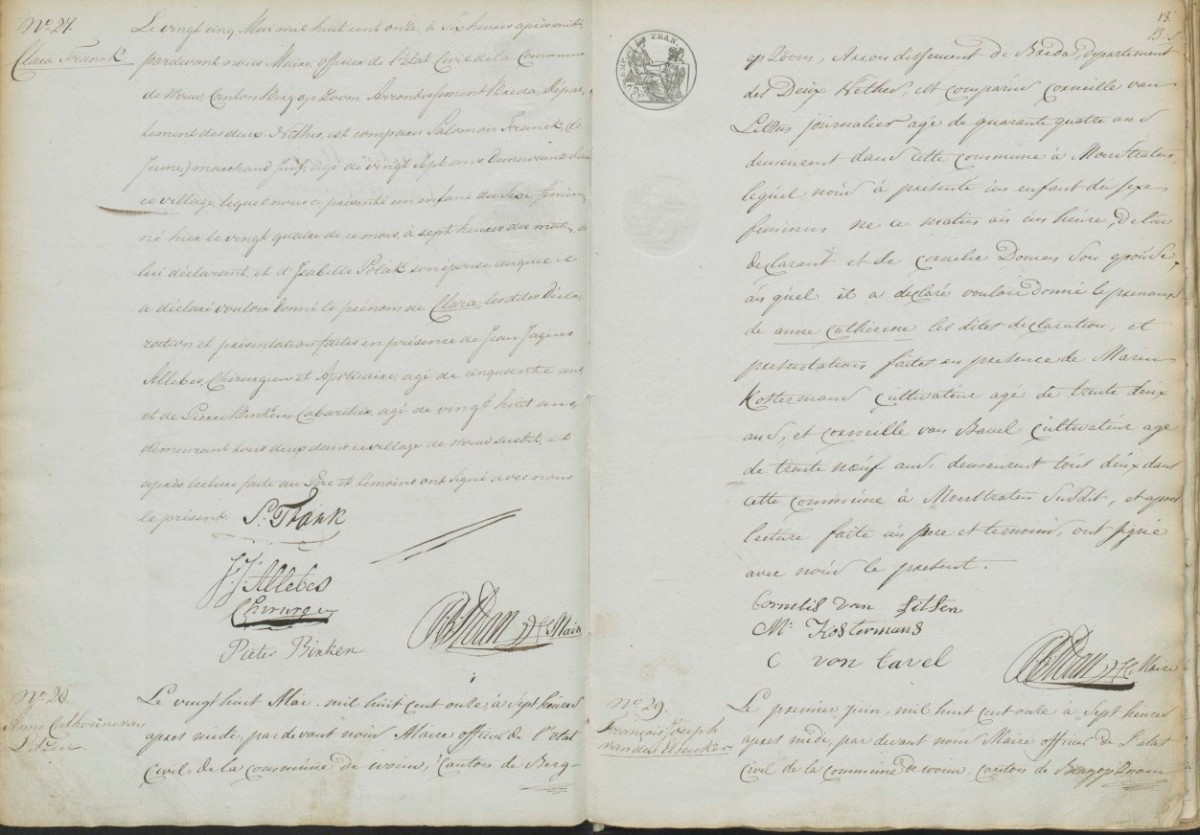 No. 27.
Clara Franck
Le vingt cinq Mai mil huit cent onze, à Six heures après midi
pardevant nous Maire, officier de l'Etat Civil de la Commune
de Wouw, Canton Bergopzoom, Arrondissement Breda, Dépar-
tement des deux Nethes, est comparu Salomon Franck, (le
Jeune) marchand Juif, agé de vingt Sept ans demeurant dans
ce village, lequel nous a présenté un enfant du Sexe féminin
né hier le vingt quatre de ce mois, à sept heures du matin, de
lui déclarant, et d'Isabelle Polak son épouse, auquel il
a déclaré vouloir donné le prénom de Clara, les dites Décla-
ration et présentation faites en présence de Jean Jaques
Allebes, Chirurgien et Apoticaire, agé de cinquante ans
et de Pierre Binken, Cabaretier, agé de vingt huit ans,
démeurant tous deux dans ce village de Wouw susdit, et
après lecture faite au Père et témoins ont signé avec nous
le présent. S. Frank
J. J. Allebes
Chirurgn
Pieter Binken
Maire
No. 28.
Anne Catherine van
Litsen
Le vingt huit Mai, mil huit cent onze, à Sept heures
apres midi, par devant nous Maire officier de l'etat
Civil de la commune de wouw, Canton de Berg-
13
opZoom, Arrondissement de Breda, departement
des Deux Nethes, est comparus Corneille van
Litsen journalier agé de quarante quatre ans
demeurent dans cette commune à Moustraten
lequel nous à presenté un enfant du sexe
feminin ne ce matin à un heure, de lui
declarant et de Cornelie Domen Son epouse,
auquel il a declaré vouloir donné le prenom
de anne Catherine les dites declaration, et
presentation faites en presence de Marin
Kosterman Cultivateur agé de trente deux
ans, et Corneille van Bavel Cultivateur agé
de trente neuf ans, demeurent tous deux dans
cette commune à Moustraten Susdit, et apres
lecture faite au pere et temoins, ont signé
avec nous le present.
Cornelis van Litsen
M. Kostermans
C von Bavel
Maire
No. 29.
François Joseph
vanden
Le premier juin, mil huit cent onze à Sept heures
apres midi, par devant nous Maire officier de l'etat
Civil de la commune de wouw, Canton de BergopZoom